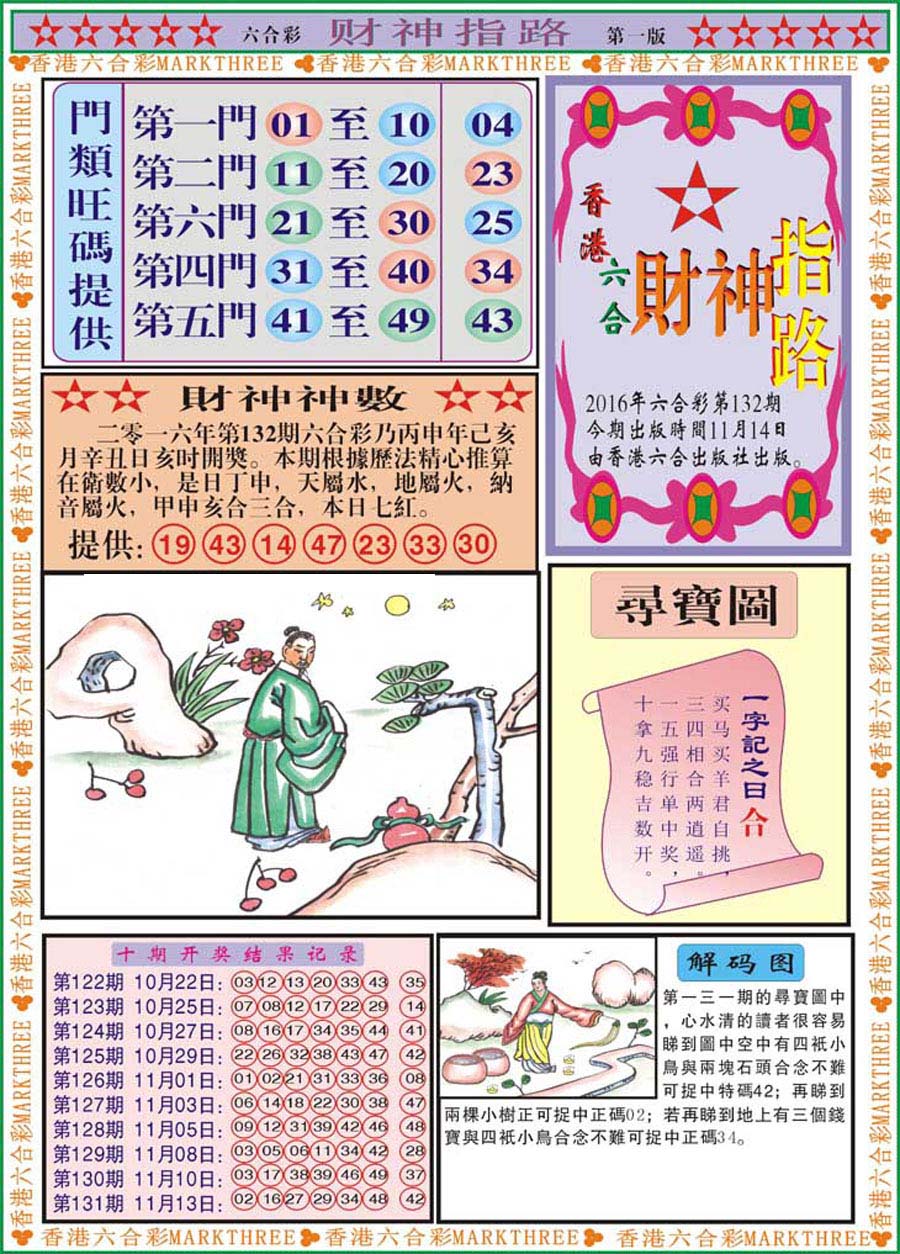 六合彩 财神指路 第一版
香港六合彩MARKTHREE 香港六合彩MARKTHREE 香港六合彩MARKTHREE
門類旺碼提供
第一門 01 至 10 04
第二門 11 至 20 23
第六門 21 至 30 25
第四門 31 至 40 34
第五門 41 至 49 43
香港六合
財神
指路
2016年六合彩第132期
今期出版時間11月14日
由香港六合出版社出版。
財神神數
二零一六年第132期六合彩乃丙申年己亥
月辛丑日亥时開獎。本期根據歷法精心推算
在衛數小，是日丁申，天屬水，地屬火，納
音屬火，甲申亥合三合，本日七紅。
提供: 19 43 14 47 23 33 30
尋寶圖
一字記之曰 合
买马买羊君自挑，
三四相合两逍遥。
一五强行单中奖，
十拿九稳吉数开。
十期开奖结果记录
第122期 10月22日: 03 12 13 20 33 43 35
第123期 10月25日: 07 08 12 17 22 29 14
第124期 10月27日: 08 16 17 34 35 44 41
第125期 10月29日: 22 26 32 38 43 47 42
第126期 11月01日: 01 02 21 31 33 36 08
第127期 11月03日: 06 14 18 22 30 38 47
第128期 11月05日: 09 12 31 39 42 46 48
第129期 11月08日: 03 05 06 11 34 42 28
第130期 11月10日: 03 17 38 39 46 49 37
第131期 11月13日: 02 16 27 29 34 48 42
解码图
第一三一期的尋寶圖中
，心水清的讀者很容易
睇到圖中空中有四祇小
鳥與兩塊石頭合念不難
可捉中特碼42；再睇到
兩棵小樹正可捉中正碼02；若再睇到地上有三個錢
寶與四祇小鳥合念不難可捉中正碼34。
香港六合彩MARKTHREE 香港六合彩MARKTHREE 香港六合彩MARKTHREE
香港六合彩MARKTHREE 香港六合彩MARKTHREE 香港六合彩MARKTHREE 香港六合彩MARKTHREE 香港六合彩MARKTHREE
香港六合彩MARKTHREE 香港六合彩MARKTHREE 香港六合彩MARKTHREE 香港六合彩MARKTHREE 香港六合彩MARKTHREE